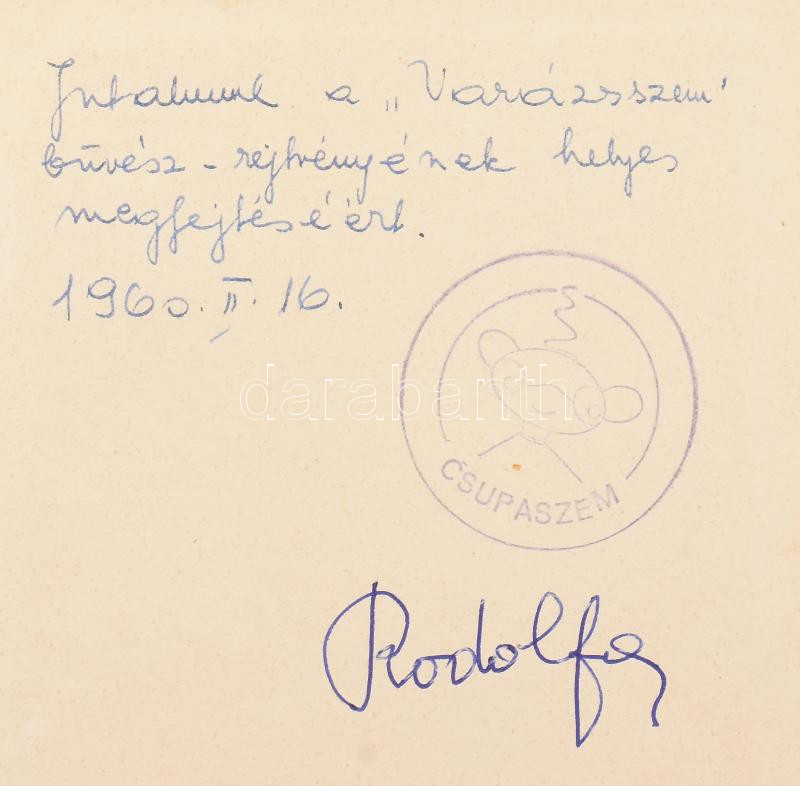 Jutalmul a „Varázsszem"
bűvész-rejtvényének helyes
megfejtéséért.
1960. II. 16.
darabanth
CSUPASZEM
Rodolfo